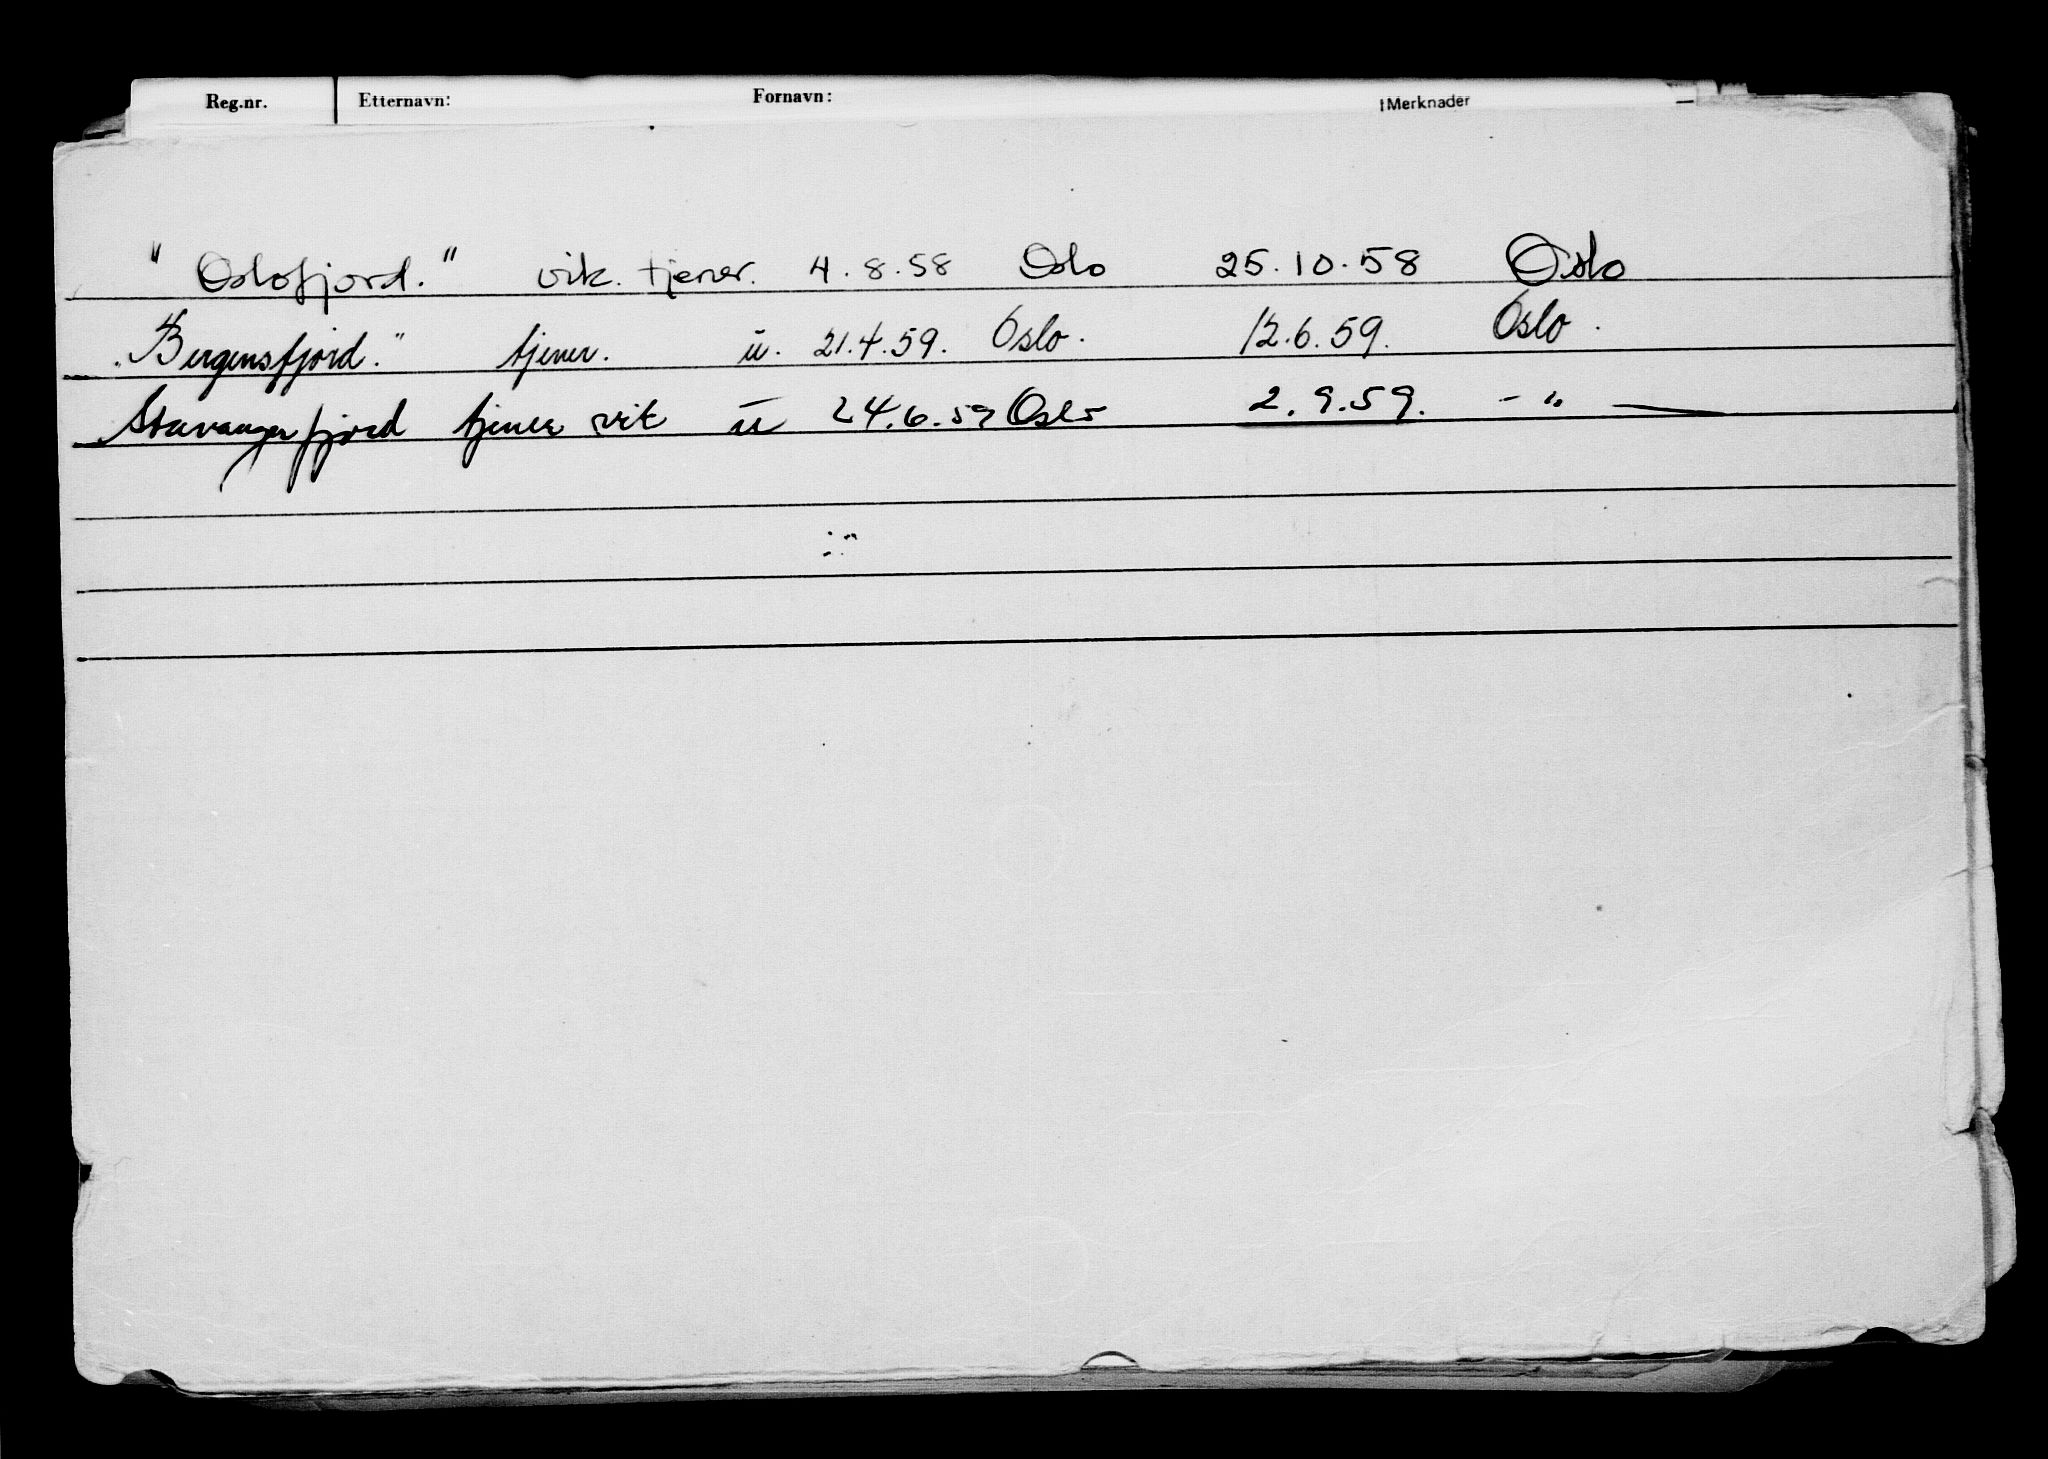 Reg.nr. Etternavn: Fornavn: Merknader
"Oslofjord." vik. tjener. 4.8.58 Oslo 25.10.58 Oslo
"Bergensfjord." tjener. u. 21.4.59. Oslo. 12.6.59. Oslo.
Stavangerfjord tjener vik u 24.6.59 Oslo 2.9.59. - " -